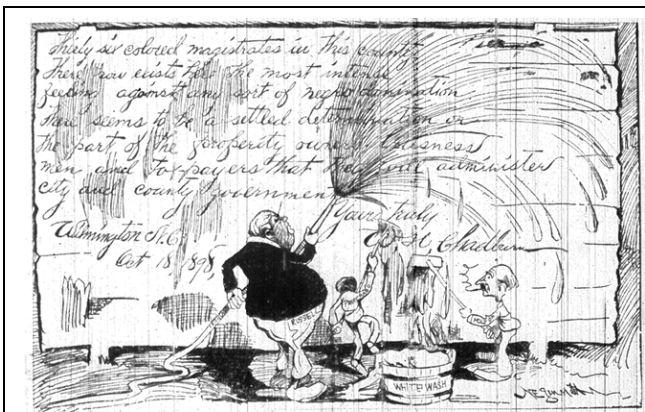 Thirty six colored magistrates in this county
There now exists here the most intense
feeling against any sort of negro domination
There seems to be a settled determination on
the part of the property owners business
men and tax-payers that they will administer
city and county government
Yours truly
H. Chadbourn
Wilmington N.C.
Oct 18 1898
WHITE WASH